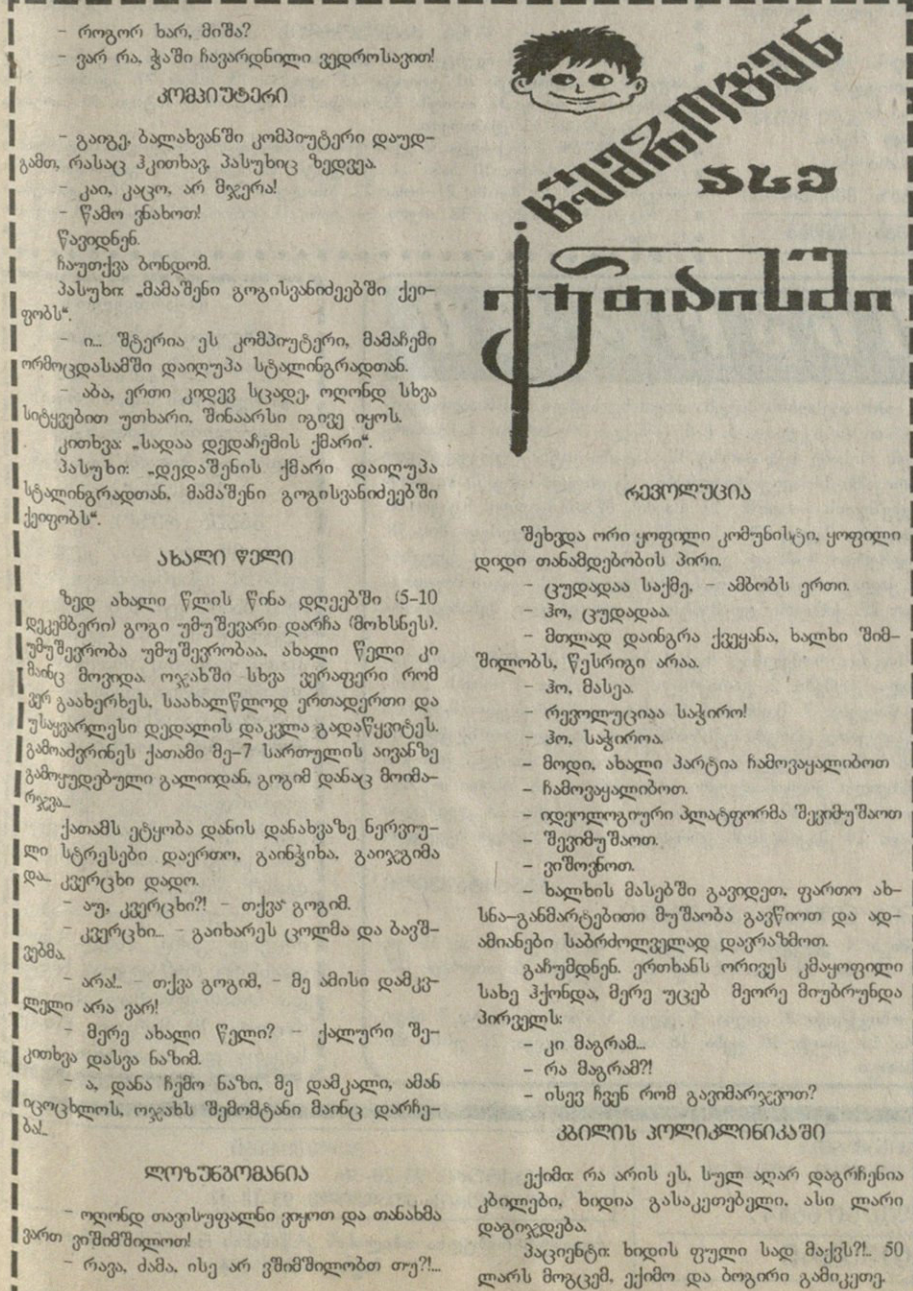 - როგორ ხარ, მიშა?
- ვარ რა, ჭაში ჩავარდნილი ვედროსავით!
კომპიუტერი
- გაიგე, ბალახვანში კომპიუტერი დაუდ-
გამთ, რასაც ჰკითხავ, პასუხიც ზედვეა.
- კაი, კაცო, არ მჯერა!
- წამო ვნახოთ!
წავიდნენ.
ჩაუთქვა ბონდომ.
პასუხი: „მამაშენი გოგისვანიძეებში ქეი-
ფობს“.
- ი... შტერია ეს კომპიუტერი, მამაჩემი
ორმოცდასამში დაიღუპა სტალინგრადთან.
- აბა, ერთი კიდევ სცადე, ოღონდ სხვა
სიტყვებით უთხარი, შინაარსი იგივე იყოს.
კითხვა: „სადაა დედაჩემის ქმარი“.
პასუხი: „დედაშენის ქმარი დაიღუპა
სტალინგრადთან, მამაშენი გოგისვანიძეებში
ქეიფობს“.
ახალი წელი
ზედ ახალი წლის წინა დღეებში (5-10
დეკემბერი) გოგი უმუშევარი დარჩა (მოხსნეს).
უმუშევრობა უმუშევრობაა, ახალი წელი კი
მაინც მოვიდა. ოჯახში სხვა ვერაფერი რომ
ვერ გაახერხეს, საახალწლოდ ერთადერთი და
უსაყვარლესი დედალის დაკვლა გადაწყვიტეს.
გამოაძვრინეს ქათამი მე-7 სართულის აივანზე
გამოყუდებული გალიიდან, გოგიმ დანაც მოიმა-
რჯვა...
ქათამს ეტყობა დანის დანახვაზე ნერვიუ-
ლი სტრესები დაერთო, გაინჭიხა, გაიჯგიმა
და... კვერცხი დადო.
- აუ, კვერცხი?! - თქვა გოგიმ.
- კვერცხი... - გაიხარეს ცოლმა და ბავშ-
ვებმა.
- არა!.. - თქვა გოგიმ, - მე ამისი დამკვ-
ლელი არა ვარ!
- მერე ახალი წელი? - ქალური შე-
კითხვა დასვა ნაზიმ.
- ა, დანა ჩემო ნაზი, მე დამკალი, ამან
იცოცხლოს, ოჯახს შემომტანი მაინც დარჩე-
ბა!..
ლოზუნგომანია
- ოღონდ თავისუფალნი ვიყოთ და თანახმა
ვართ ვიშიმშილოთ!
- რავა, ძამა, ისე არ ვშიმშილობთ თუ?!...
წუმპროვენ
ასე
ქუთაისში
რევოლუცია
შეხვდა ორი ყოფილი კომუნისტი, ყოფილი
დიდი თანამდებობის პირი.
- ცუდადაა საქმე, - ამბობს ერთი.
- ჰო, ცუდადაა.
- მთლად დაინგრა ქვეყანა, ხალხი შიმ-
შილობს, წესრიგი არაა.
- ჰო, მასეა.
- რევოლუციაა საჭირო!
- ჰო, საჭიროა.
- მოდი, ახალი პარტია ჩამოვაყალიბოთ
- ჩამოვაყალიბოთ.
- იდეოლოგიური პლატფორმა შევიმუშაოთ
- შევიმუშაოთ.
- ვიშოვნოთ.
- ხალხის მასებში გავიდეთ, ფართო ახ-
სნა-განმარტებითი მუშაობა გავწიოთ და ად-
ამიანები საბრძოლველად დავრაზმოთ.
გაჩუმდნენ. ერთხანს ორივეს კმაყოფილი
სახე ჰქონდა, მერე უცებ მეორე მიუბრუნდა
პირველს:
- კი მაგრამ...
- რა მაგრამ?!
- ისევ ჩვენ რომ გავიმარჯვოთ?
კბილის პოლიკლინიკაში
ექიმი: რა არის ეს, სულ აღარ დაგრჩენია
კბილები, ხიდია გასაკეთებელი, ასი ლარი
დაგიჯდება.
პაციენტი: ხიდის ფული სად მაქვს?!.. 50
ლარს მოგცემ, ექიმო და ბოგირი გამიკეთე.